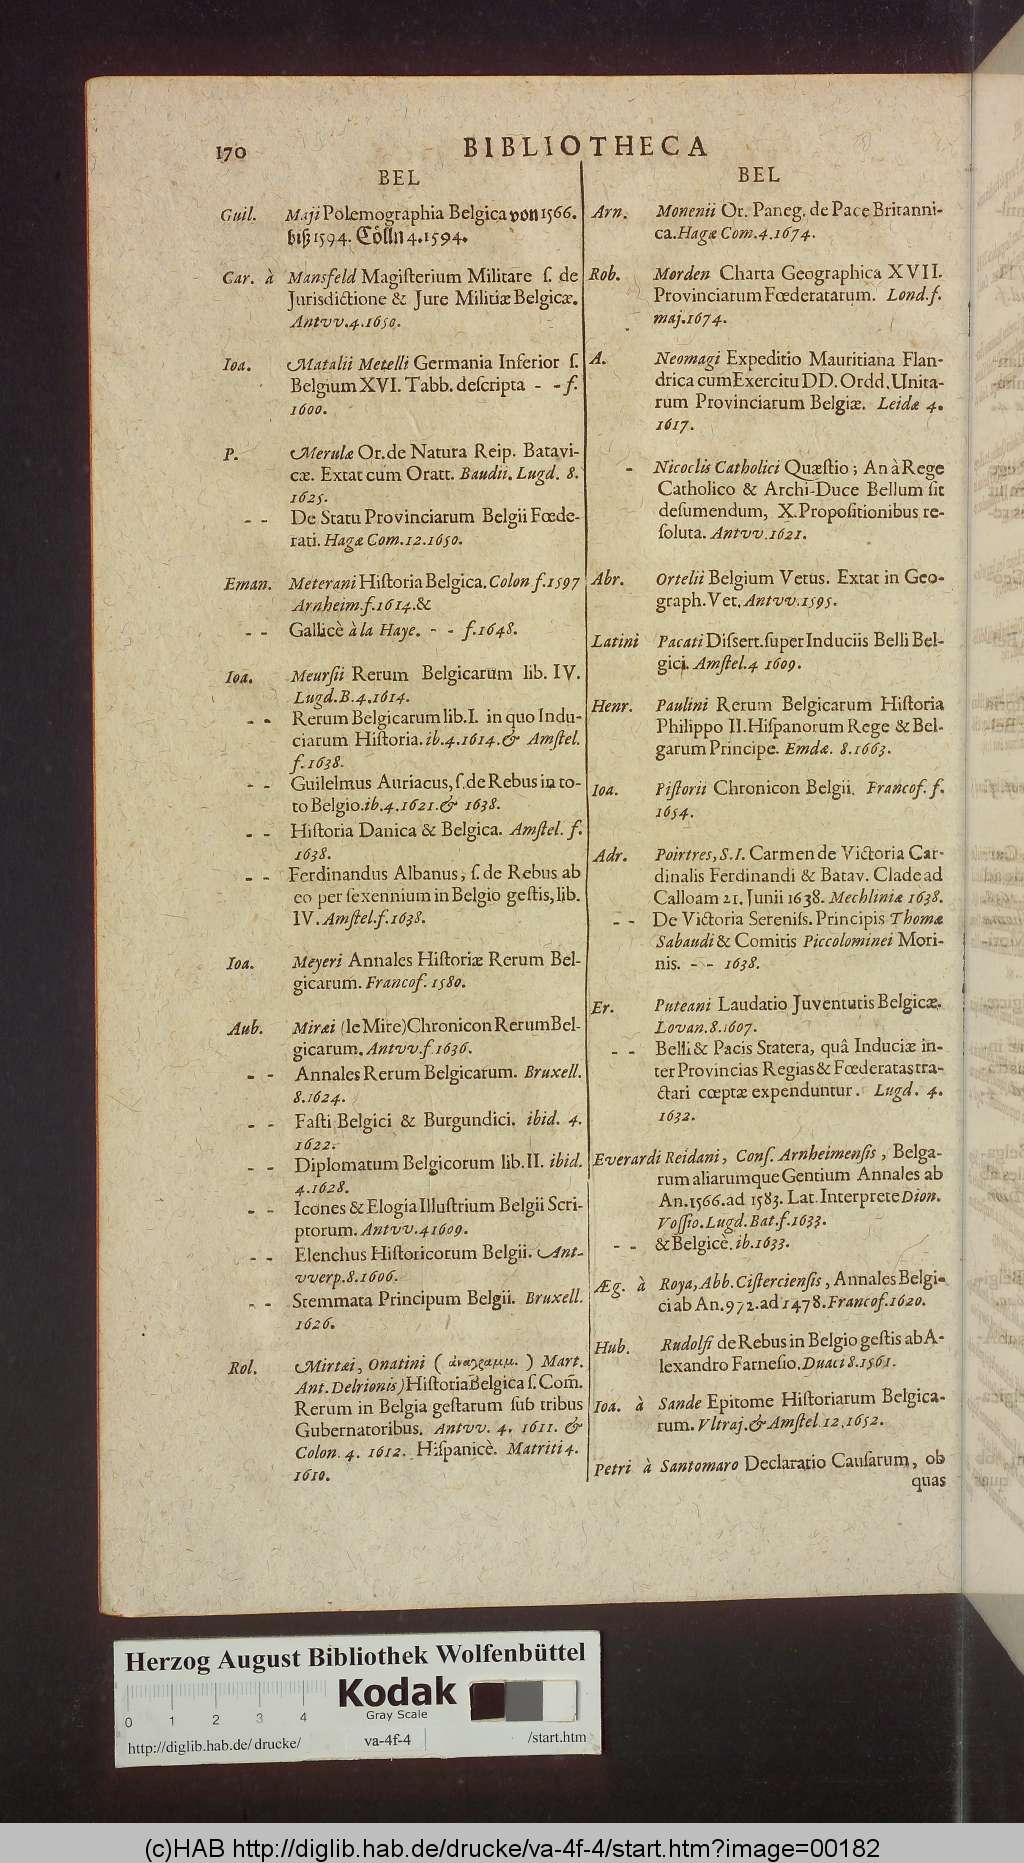 170
BIBLIOTHECA
BEL
Guil. Maji Polemographia Belgica von 1566.
biß 1594. Cölln 4. 1594.
Car. à Mansfeld Magiſterium Militare ſ. de
Jurisdictione & Jure Militiæ Belgicæ.
Antvv. 4. 1650.
Ioa. Matalii Metelli Germania Inferior ſ.
Belgium XVI. Tabb. deſcripta - - f.
1600.
P. Merulæ Or. de Natura Reip. Batavi-
cæ. Extat cum Oratt. Baudii. Lugd. 8.
1625.
- - De Statu Provinciarum Belgii Fœde-
rati. Hagæ Com. 12. 1650.
Eman. Meterani Hiſtoria Belgica. Colon f. 1597
Arnheim. f. 1614. &
- - Gallicè à la Haye. - - f. 1648.
Ioa. Meurſii Rerum Belgicarum lib. IV.
Lugd. B. 4. 1614.
- - Rerum Belgicarum lib. I. in quo Indu-
ciarum Hiſtoria. ib. 4. 1614. & Amſtel.
f. 1638.
- - Guilelmus Auriacus, ſ. de Rebus in to-
to Belgio. ib. 4. 1621. & 1638.
- - Hiſtoria Danica & Belgica. Amſtel. f.
1638.
- - Ferdinandus Albanus, ſ. de Rebus ab
eo per ſexennium in Belgio geſtis, lib.
IV. Amſtel. f. 1638.
Ioa. Meyeri Annales Hiſtoriæ Rerum Bel-
gicarum. Francof. 1580.
Aub. Miræi (le Mire) Chronicon Rerum Bel-
gicarum. Antvv. f 1636.
- - Annales Rerum Belgicarum. Bruxell.
8. 1624.
- - Faſti Belgici & Burgundici. ibid. 4.
1622.
- - Diplomatum Belgicorum lib. II. ibid.
4. 1628.
- - Icones & Elogia Illuſtrium Belgii Scri-
ptorum. Antvv. 4 1609.
- - Elenchus Hiſtoricorum Belgii. Ant-
vverp. 8. 1606.
- - Stemmata Principum Belgii. Bruxell.
1626.
Rol. Mirtæi, Onatini ( ἀναγραμμ. ) Mart.
Ant. Delrionis) Hiſtoria Belgica ſ. Com̃.
Rerum in Belgia geſtarum ſub tribus
Gubernatoribus. Antvv. 4. 1611. &
Colon. 4. 1612. Hiſpanicè. Matriti 4.
1610.
BEL
Arn. Monenii Or. Paneg. de Pace Britanni-
ca. Hagæ Com. 4. 1674.
Rob. Morden Charta Geographica XVII.
Provinciarum Fœderatarum. Lond. f.
maj. 1674.
A. Neomagi Expeditio Mauritiana Flan-
drica cum Exercitu DD. Ordd. Unita-
rum Provinciarum Belgiæ. Leidæ 4.
1617.
- Nicoclis Catholici Quæſtio ; An à Rege
Catholico & Archi-Duce Bellum ſit
deſumendum, X. Propoſitionibus re-
ſoluta. Antvv. 1621.
Abr. Ortelii Belgium Vetus. Extat in Geo-
graph. Vet. Antvv. 1595.
Latini Pacati Diſſert. ſuper Induciis Belli Bel-
gici. Amſtel. 4 1609.
Henr. Paulini Rerum Belgicarum Hiſtoria
Philippo II. Hiſpanorum Rege & Bel-
garum Principe. Emdæ. 8. 1663.
Ioa. Piſtorii Chronicon Belgii. Francof. f.
1654.
Adr. Poirtres, S. I. Carmen de Victoria Car-
dinalis Ferdinandi & Batav. Clade ad
Calloam 21. Junii 1638. Mechliniæ 1638.
- - De Victoria Sereniſs. Principis Thomæ
Sabaudi & Comitis Piccolominei Mori-
nis. - - 1638.
Er. Puteani Laudatio Juventutis Belgicæ.
Lovan. 8. 1607.
- - Belli & Pacis Statera, quâ Induciæ in-
ter Provincias Regias & Fœderatas tra-
ctari cœptæ expenduntur. Lugd. 4.
1632.
Everardi Reidani, Conſ. Arnheimenſis, Belga-
rum aliarumque Gentium Annales ab
An. 1566. ad 1583. Lat. Interprete Dion.
Voſſio. Lugd. Bat. f. 1633.
- - & Belgicè. ib. 1633.
Æg. à Roya, Abb. Ciſtercienſis, Annales Belgi-
ci ab An. 972. ad 1478. Francof. 1620.
Hub. Rudolfi de Rebus in Belgio geſtis ab A-
lexandro Farneſio. Duaci 8. 1561.
Ioa. à Sande Epitome Hiſtoriarum Belgica-
rum. Vltraj. & Amſtel 12. 1652.
Petri à Santomaro Declaratio Cauſarum, ob
quas
Herzog August Bibliothek Wolfenbüttel
Kodak
Gray Scale
0 1 2 3 4
http://diglib.hab.de/drucke/ va-4f-4 /start.htm
(c)HAB http://diglib.hab.de/drucke/va-4f-4/start.htm?image=00182